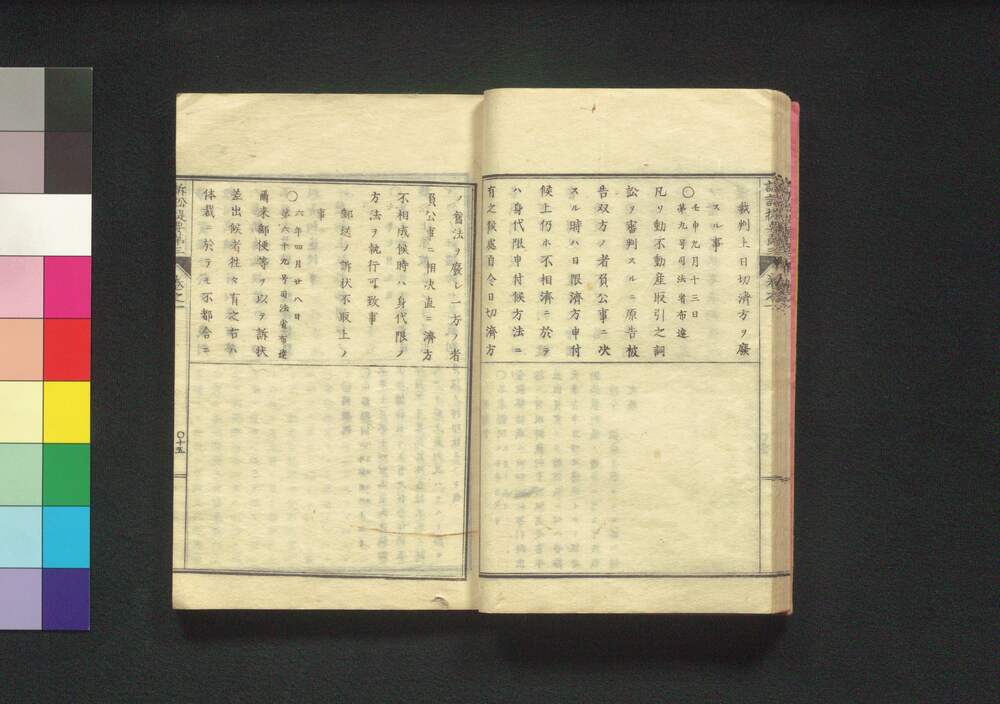 裁判上日切濟方ヲ廢
スル事
〇壬申九月十三日
第九号司法省布達
凡ソ動不動産取引之詞
訟ヲ審判スルニ原告被
告双方ノ者負公事ニ决
スル時ハ日限濟方申付
候上仍ホ不相濟ニ於テ
ハ身代限申付候方法ニ
有之候處自今日切濟方
ノ舊法ヲ廢シ一方ノ者
負公事ニ相决直ニ濟方
不相成候時ハ身代限ノ
方法ヲ執行可致事
郵送ノ訴状不取上ノ
事
〇六年四月廿八日
第六十九号司法省布達
爾来郵便等ヲ以テ訴状
差出候者徃々有之右ハ
体裁ニ於テモ不都合ニ
〇十五